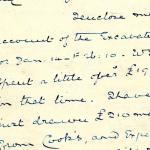 I enclose my
account of the Excavat
or Jan. 14 - Feb. 10. W
spent a little over £19
in that time. I have
just drawn £210 m
from Cook's, and expe